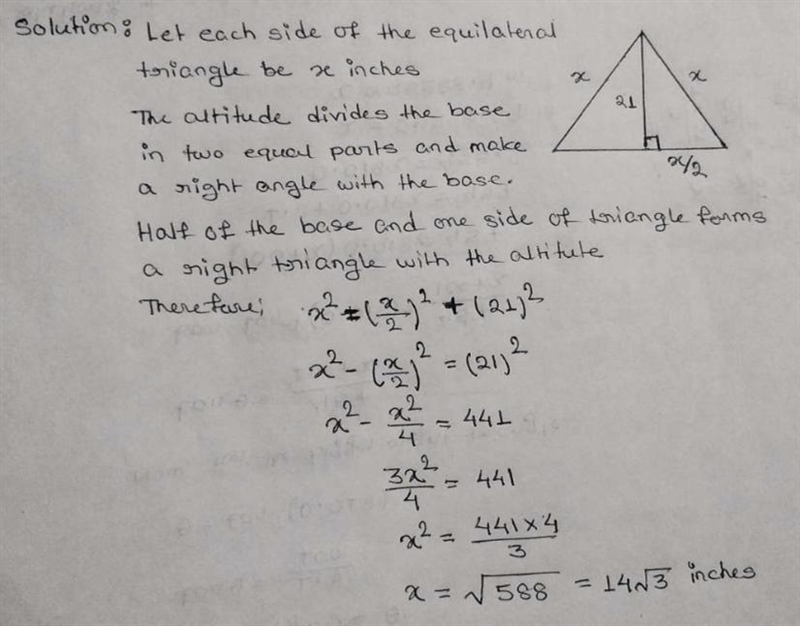 Solution: Let each side of the equilateral
triangle be x inches
The altitude divides the base
in two equal parts and make
a right angle with the base.
x
x
21
x/2
Half of the base and one side of triangle forms
a right triangle with the altitute
Therefore; x² = (x/2)² + (21)²
x² - (x/2)² = (21)²
x² - x²/4 = 441
3x²/4 = 441
x² = 441×4/3
x = √588 = 14√3 inches